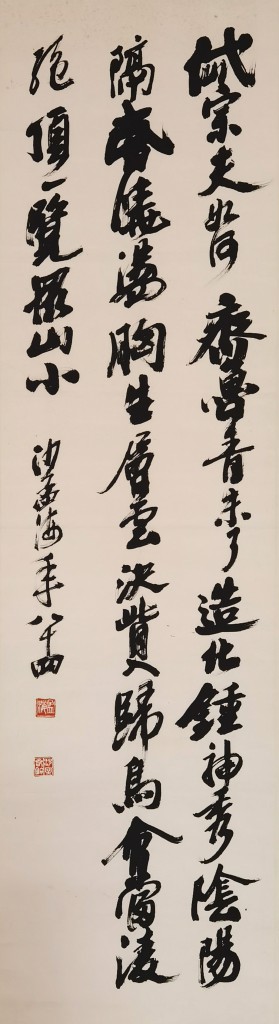 岱宗夫如何齊魯青未了造化鍾神秀陰陽
隔昏曉盪胸生層雲決眥入歸鳥會當凌
絕頂一覽眾山小
沙孟海年八十四